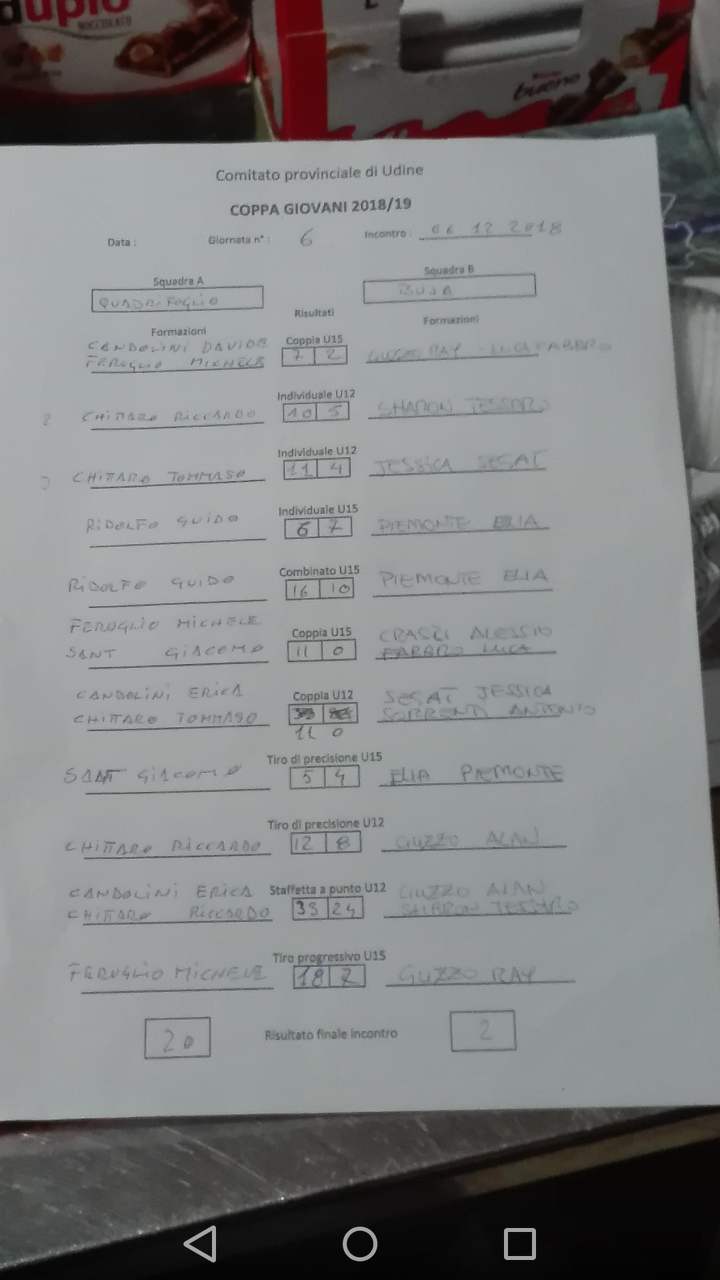 duplo
NOCCIOLATO
bueno
Comitato provinciale di Udine
COPPA GIOVANI 2018/19
Data : Giornata n° : 6 Incontro : 06 12 2018
Squadra A Squadra B
QUADRIFOGLIO BUJA
Risultati
Formazioni Formazioni
CANDOLINI DAVIDE Coppia U15
FERUGLIO MICHELE 7 2 GUZZO RAY - LUCA FABBRO
Individuale U12
2 CHITTARO RICCARDO 10 5 SHARON TESSARO
Individuale U12
CHITTARO TOMMASO 11 4 JESSICA SEGAT
Individuale U15
RIDOLFO GUIDO 6 7 PIEMONTE ELIA
Combinato U15
RIDOLFO GUIDO 16 10 PIEMONTE ELIA
FERUGLIO MICHELE Coppia U15 ALESSIO
SANT GIACOMO 11 0 FABBRO LUCA
CANDOLINI ERICA Coppia U12 SEGAT JESSICA
CHITTARO TOMMASO ANTONIO
11 0
Tiro di precisione U15
SANT GIACOMO 5 4 ELIA PIEMONTE
Tiro di precisione U12
CHITTARO RICCARDO 12 8 GUZZO ALAN
CANDOLINI ERICA Staffetta a punto U12 GUZZO ALAN
CHITTARO RICCARDO 35 24 SHARON TESSARO
Tiro progressivo U15
FERUGLIO MICHELE 18 2 GUZZO RAY
20 Risultato finale incontro 2